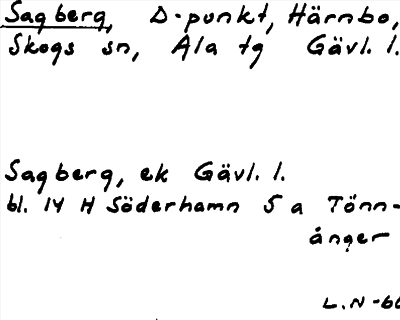 Sagberg, D-punkt, Härnbo,
Skogs sn, Ala tg Gävl. l.
Sagberg, ek Gävl. l.
bl. 14 H Söderhamn 5 a Tönn-
ånger
L.N-66